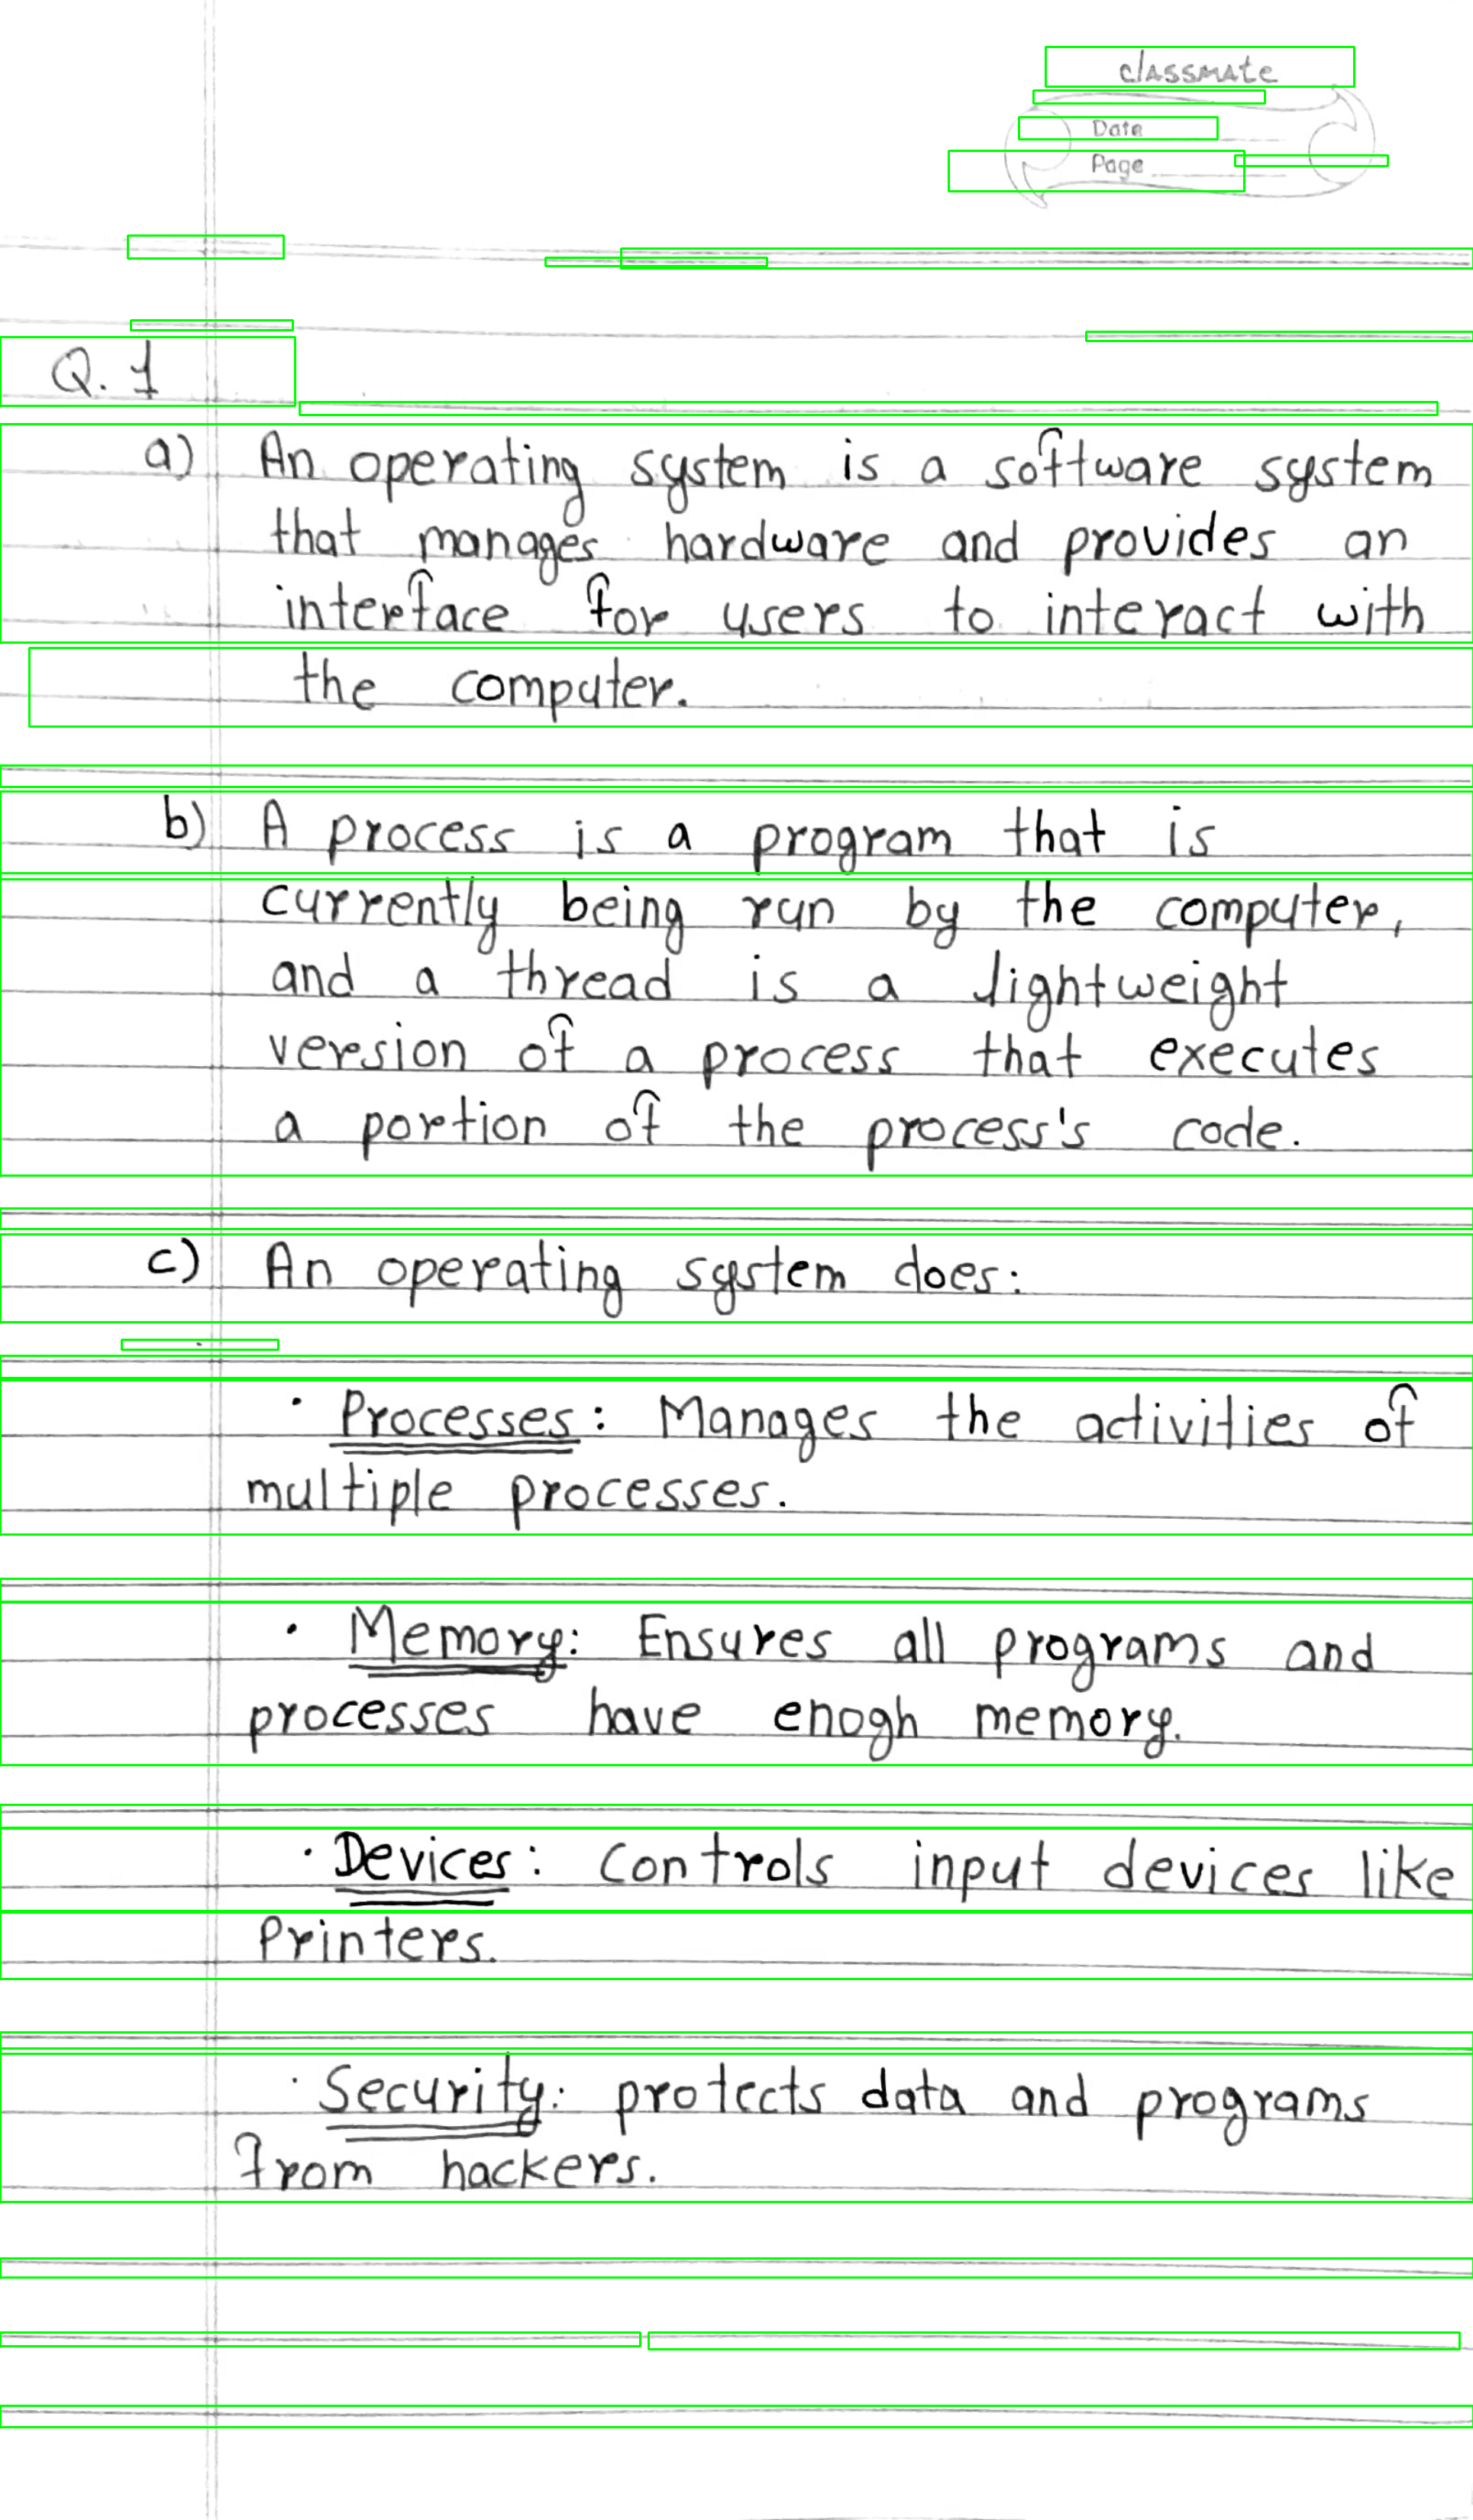 classmate
Date
Page
Q. 1
a) An operating system is a software system
that manages hardware and provides an
interface for users to interact with
the computer.
b) A process is a program that is
currently being run by the computer,
and a thread is a lightweight
version of a process that executes
a portion of the process's code.
c) An operating system does:
· Processes: Manages the activities of
multiple processes.
· Memory: Ensures all programs and
processes have enogh memory.
· Devices: Controls input devices like
Printers.
· Security: protects data and programs
from hackers.